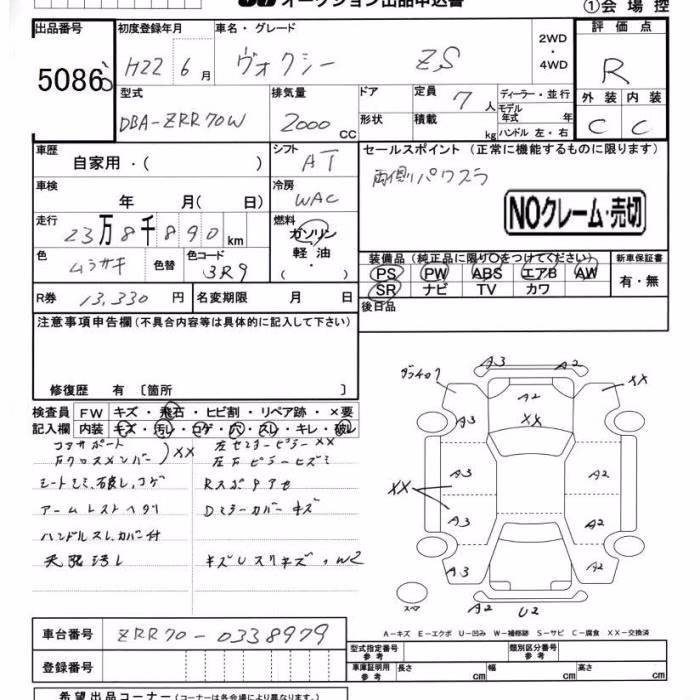 オークション出品申込書
①会場控
出品番号
5086
初度登録年月
H22 6月
車名・グレード
ヴォクシー ZS
2WD
・
4WD
評価点
R
型式
DBA-ZRR70W
排気量
2000 CC
ドア
形状
定員 7人
積載 kg
ディーラー・並行
モデル年式 年
ハンドル 左・右
外装 内装
C C
車歴
自家用・( )
シフト
AT
セールスポイント(正常に機能するものに限ります)
両側パワスラ
車検
年 月( 日)
冷房
WAC
NOクレーム・売切
走行
23万8千890km
燃料
ガソリン
軽油
・( )
色
ムラサキ
色替
色コード
3R9
装備品(純正品に限り○をつけてください)
PS PW ABS エアB AW
SR ナビ TV カワ
新車保証書
有・無
R券 13,330円
名変期限 月 日
後日品
注意事項申告欄(不具合内容等は具体的に記入して下さい)
修復歴 有〔箇所 〕
検査員記入欄
FW キズ・飛石・ヒビ割・リペア跡・×要
内装 キズ・汚レ・コゲ・穴・スレ・キレ・破レ
コアサポート
左センターピラーXX
XX
シートヨゴレ、破レ、コゲ
Rスポアセ
アームレストヘタリ
Dミラーカバーキズ
ハンドルスレ、カバー付
天張汚レ
キズUスリキズ、W2
A3 A2
XX
A2
A3
XX
A3
A2
XX
A3
A2
A3
A2
スペア
A2 U2
A-キズ E-エクボ U-凹み W-補修跡 S-サビ C-腐食 XX-交換済
車台番号 ZRR70-0338979
登録番号
型式指定番号 参考
類別区分番号 参考
車庫証明用 参考
長さ cm
幅 cm
高さ cm
希望出品コーナー(コーナーは各会場により異なります。)